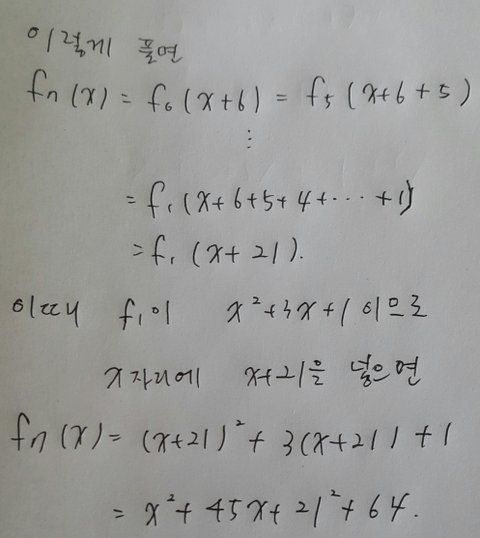 이렇게 풀면
f₇(x) = f₆(x+6) = f₅(x+6+5)
⋮
= f₁(x+6+5+4+⋯+1)
= f₁(x+21).
이때 f₁이 x²+3x+1 이므로
x자리에 x+21을 넣으면
f₇(x) = (x+21)² + 3(x+21) + 1
= x² + 45x + 21² + 64.